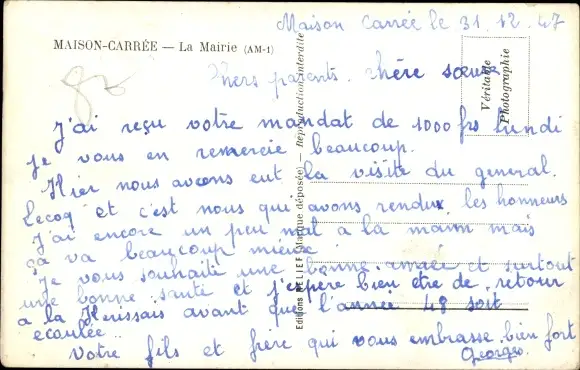 Maison Carrée le 31.12.47
MAISON-CARRÉE — La Mairie (AM-1)
Véritable Photographie
Chers parents. Chère sœur
J'ai reçu votre mandat de 1000 frs lundi
je vous en remercie beaucoup.
Hier nous avons eut la visite du general.
Lecoq et c'est nous qui avons rendux les honneurs
J'ai encore un peu mal a la main mais
ça va beaucoup mieux
Je vous souhaite une bonne année et surtout
une bonne santé et j'espère bien etre de retour
a la Herissais avant que l'année 48 soit
ecoulée
Votre fils et frère qui vous embrasse bien fort
Georges
Editions RELIEF (Marque déposée) — Reproduction interdite